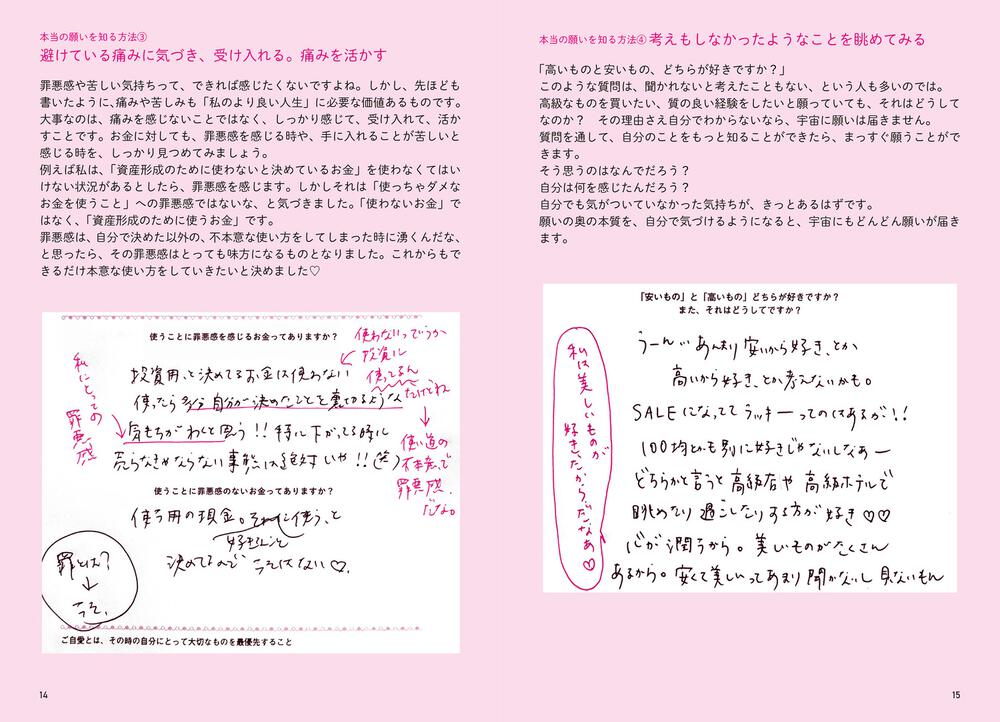 本当の願いを知る方法③
避けている痛みに気づき、受け入れる。痛みを活かす
罪悪感や苦しい気持ちって、できれば感じたくないですよね。しかし、先ほども
書いたように、痛みや苦しみも「私のより良い人生」に必要な価値あるものです。
大事なのは、痛みを感じないことではなく、しっかり感じて、受け入れて、活か
すことです。お金に対しても、罪悪感を感じる時や、手に入れることが苦しいと
感じる時を、しっかり見つめてみましょう。
例えば私は、「資産形成のために使わないと決めているお金」を使わなくてはい
けない状況があるとしたら、罪悪感を感じます。しかしそれは「使っちゃダメな
お金を使うこと」への罪悪感ではないな、と気づきました。「使わないお金」で
はなく、「資産形成のために使うお金」です。
罪悪感は、自分で決めた以外の、不本意な使い方をしてしまった時に湧くんだな、
と思ったら、その罪悪感はとっても味方になるものとなりました。これからもで
きるだけ本意な使い方をしていきたいと決めました♡
使うことに罪悪感を感じるお金ってありますか？
使わないってゆうか
投資に
使ってるん
だけどね
↓
使い道の
不本意で
罪悪感、
だな。
私にとっての
罪悪感
投資用、と決めてるお金は使わない
使ったら多分自分が決めたことを裏切るような
気もちがわくと思う!! 特に下がってる時に
売らなきゃならない事態は絶対いや!!(笑)
使うことに罪悪感のないお金ってありますか？
使う用の現金。それに使う、と
好きなこと
決めてるので
ない♡.
罪とは?
↓
ご自愛とは、その時の自分にとって大切なものを最優先すること
14
本当の願いを知る方法④ 考えもしなかったようなことを眺めてみる
「高いものと安いもの、どちらが好きですか？」
このような質問は、聞かれないと考えたこともない、という人も多いのでは。
高級なものを買いたい、質の良い経験をしたいと願っていても、それはどうして
なのか？　その理由さえ自分でわからないなら、宇宙に願いは届きません。
質問を通して、自分のことをもっと知ることができたら、まっすぐ願うことがで
きます。
そう思うのはなんでだろう？
自分は何を感じたんだろう？
自分でも気がついていなかった気持ちが、きっとあるはずです。
願いの奥の本質を、自分で気づけるようになると、宇宙にもどんどん願いが届き
ます。
「安いもの」と「高いもの」どちらが好きですか？
また、それはどうしてですか？
私は美しいものが
好き、だから、だなあ♡
うーん… あんまり安いから好き、とか
高いから好き、とか考えないかも。
SALEになっててラッキーってのはあるが!!
100均とかも別に好きじゃないしなあー
どちらかと言うと高級店や高級ホテルで
眺めたり過ごしたりする方が好き♡♡
心が潤うから。美しいものがたくさん
あるから。安くて美しいってあまり聞かないし見ないもん
15